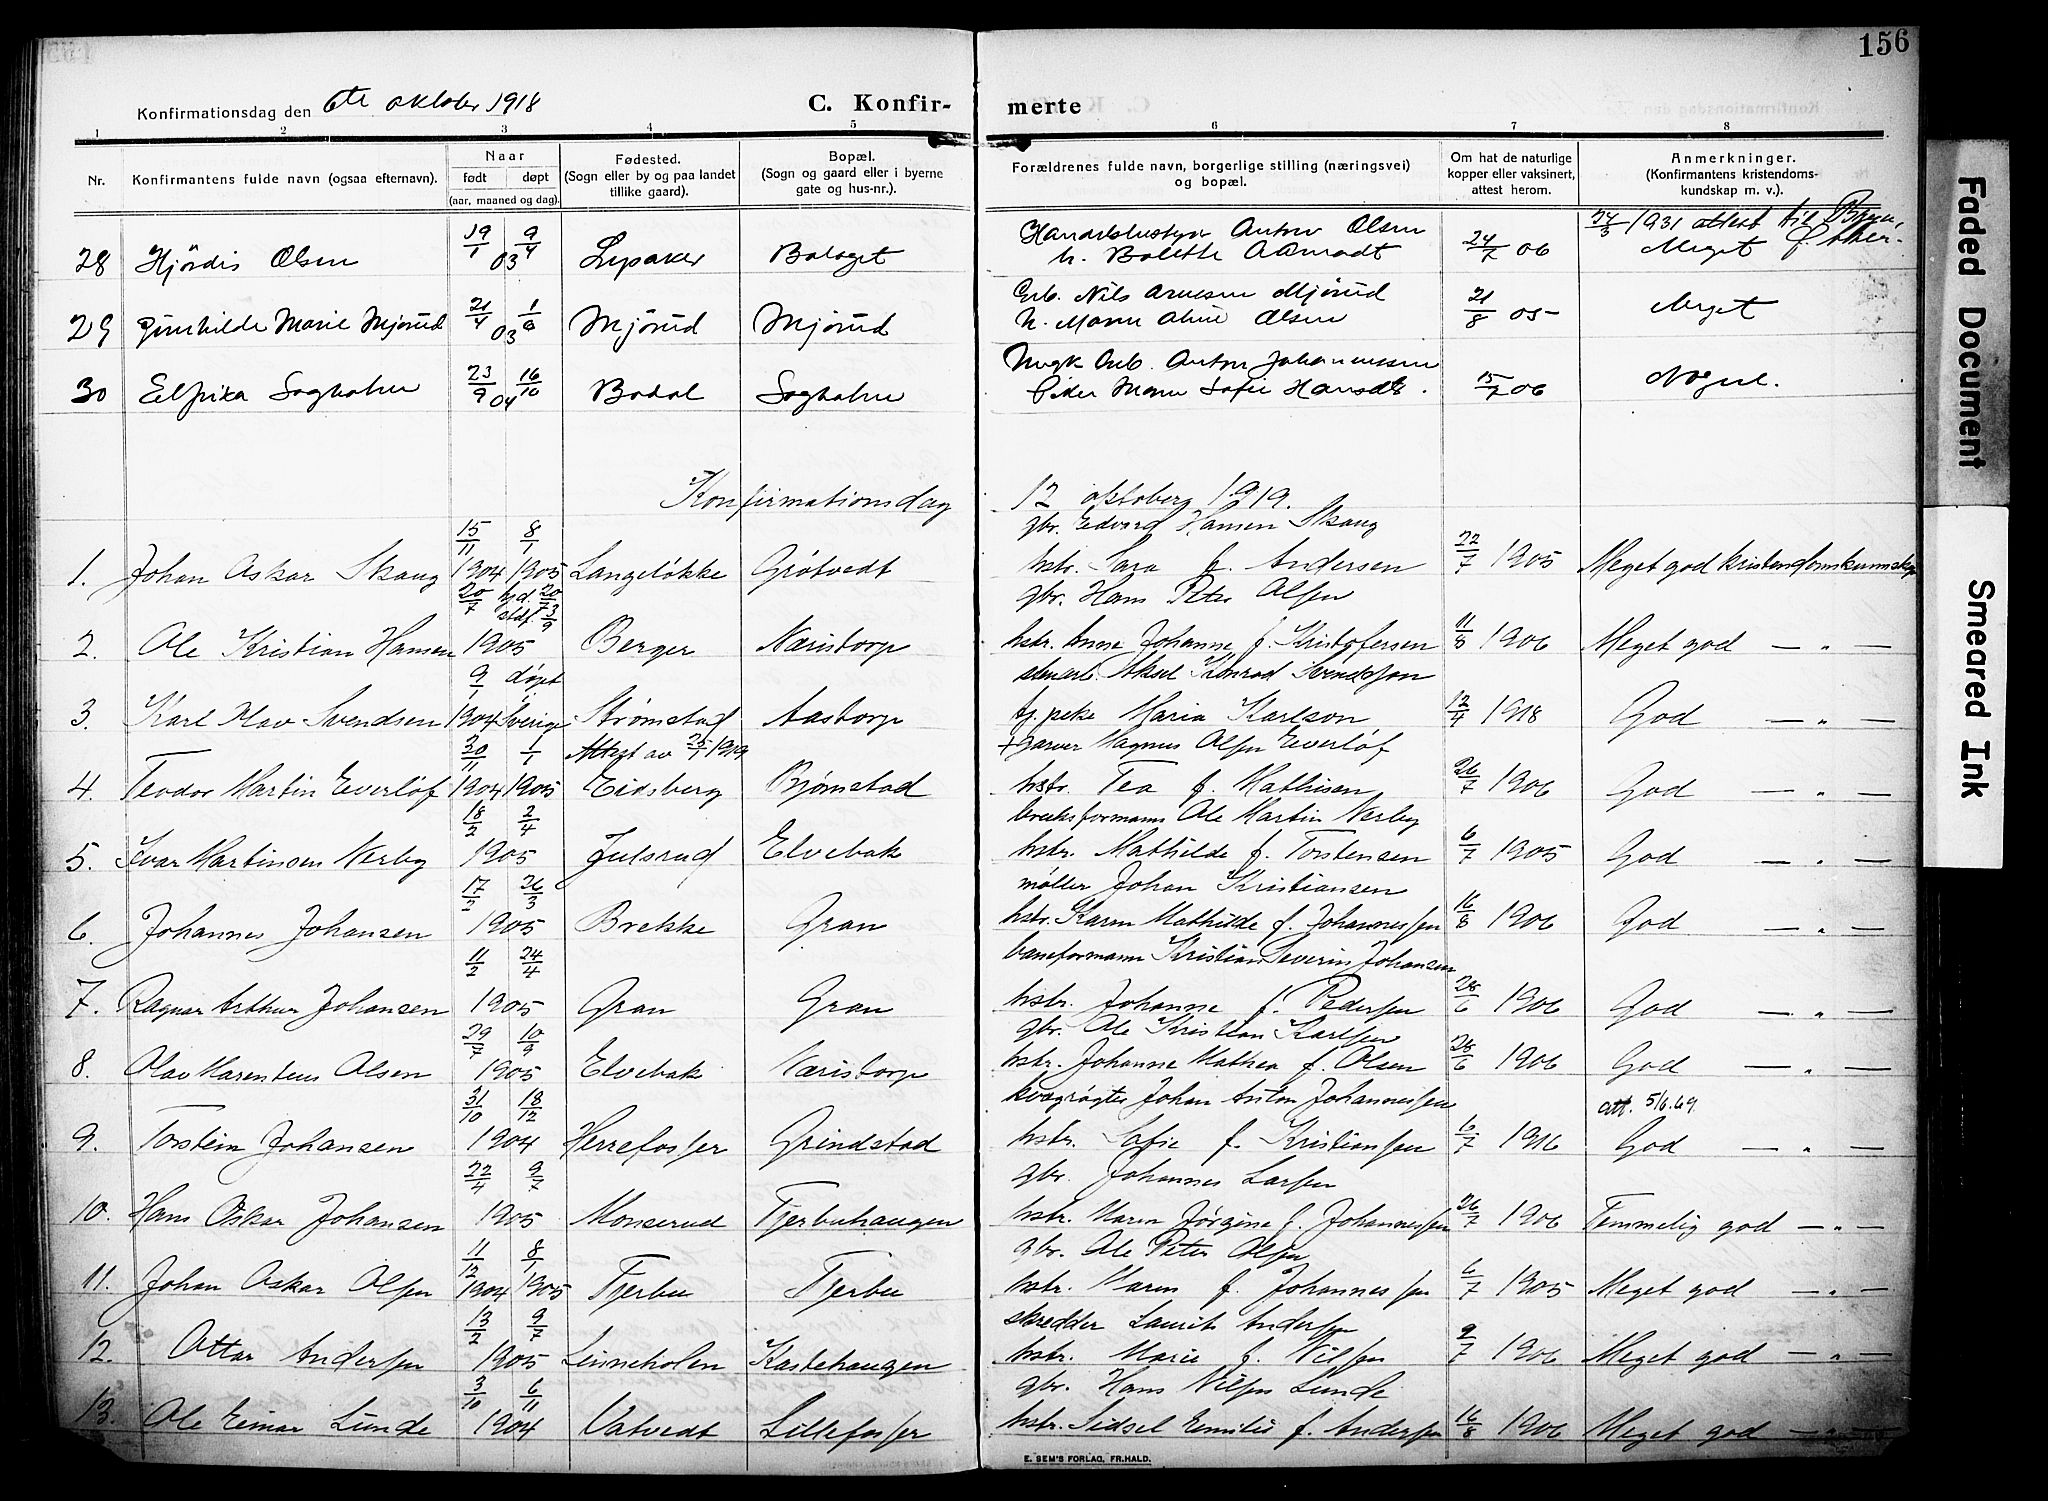 156
Konfirmationsdag den 6te oktober 1918
C. Konfir-
merte
1 2 3 4 5 6 7 8
Nr. Konfirmantens fulde navn (ogsaa efternavn).
Naar
født døpt
(aar, maaned og dag).
Fødested.
(Sogn eller by og paa landet
tillike gaard).
Bopæl.
(Sogn og gaard eller i byerne
gate og hus-nr.).
Forældrenes fulde navn, borgerlige stilling (næringsvei)
og bopæl.
Om hat de naturlige
kopper eller vaksinert,
attest herom.
Anmerkninger.
(Konfirmantens kristendoms-
kundskap m. v.).
19/1 9/4 Anton Olsen 1931 attest til
28 Hjördis Olsen 03 Lysaker 24/7 06 Meget
21/4 1/6 Arb. Nils Arnesen Mjørud
29 Gunhilde Marie Mjørud 03 Mjørud Mjørud h. Maren Oline Olsen 21/8 05 Meget
23/9 16/10 Arb. Anton Johannessen
30 04 Bodal Maren Sofie Hansdt. 15/7 06 Nogne.
Konfirmationsdag 12 oktober 1919.
15/11 8/1 gbr. Edvard Hansen Skaug
1. Johan Oskar Skaug 1904 1905 Langeløkke Grøtvedt hstr. Sara f. Andersen 22/7 1905 Meget god kristendomskunnskap
20/7 hjd. 20/7 stdf. 3/9 gbr. Hans Peter Olsen
2. Ole Kristian Hansen 1905 Berger Næristorp hstr. Anne Johanne f. Kristofersen 11/8 1906 Meget god — " —
9/1 døpt i stenarb. Aksel Konrad Svendsson
3. Karl Olav Svendsen 1904 Sverige Strømstad Aastorp tj.peke Maria Karlson 12/4 1918 God — " —
30/11 1/1 Attest av 25/1 1919 + garver Magnus Olsen Everløf
4. Teodor Martin Everløf 1904 1905 Eidsberg Bjørnstad hstr. Tea f. Mathisen 26/7 1906 God — " —
18/2 2/4 bruksformann Ole Martin Nerby
5. Ivar Martinsen Nerby 1905 Julsrud Elvebak hstr. Mathilde f. Torstensen 6/7 1905 God — " —
17/2 26/3 møller Johan Kristiansen
6. Johannes Johansen 1905 Brekke Gran hstr. Karen Mathilde f. Johannessen 16/8 1906 God — " —
11/2 24/4 baneformann Kristian Severin Johansen
7. Ragnar Arthur Johansen 1905 Gran Gran hstr. Johanne f. Pedersen 28/6 1906 God — " —
29/7 10/9 gbr. Ole Kristian Karlsen
8. Olav Marentius Olsen 1905 Elvebak Næristorp hstr. Johanne Mathea f. Olsen 28/6 1906 God — " —
31/10 18/12 kvegrøgter Johan Anton Johannessen att. 5/6.69.
9. Torstein Johansen 1904 Herrefosser Grindstad hstr. Sofie f. Kristianssen 6/7 1916 God — " —
22/4 9/7 gbr. Johannes Larsen
10. Hans Oskar Johansen 1905 Monserud Tjerbuhaugen hstr. Maren Jørgine f. Johannessen 26/7 1906 Temmelig god — " —
11/12 8/1 gbr. Ole Peter Olsen
11. Johan Oskar Olsen 1904 1905 Tjerbu Tjerbu hstr. Maren f. Johannessen 6/7 1905 Meget god — " —
13/2 9/7 skredder Laurits Andersen
12. Ottar Andersen 1905 Linneholen Kastehaugen hstr. Marie f. Nilsen 9/7 1906 Meget god — " —
3/10 6/11 gbr. Hans Nilsen Lunde
13. Ole Einar Lunde 1904 Vatvedt Lillefosser hstr. Sidsel Emilie f. Andersen 16/8 1906 Meget god — " —
E. SEM'S FORLAG, FR.HALD.
Faded Document
Smeared Ink